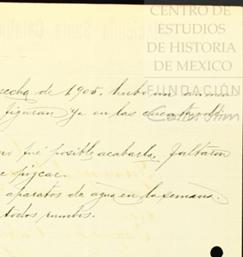 CENTRO DE
ESTUDIOS
DE HISTORIA
DE MEXICO
FUNDACIÓN
Carlos Slim
de 1905. hubo un
figuran ya en las
fué posible acabarla. Faltaron
pizcar.
aparatos de agua en la semana.
todos rumbos.